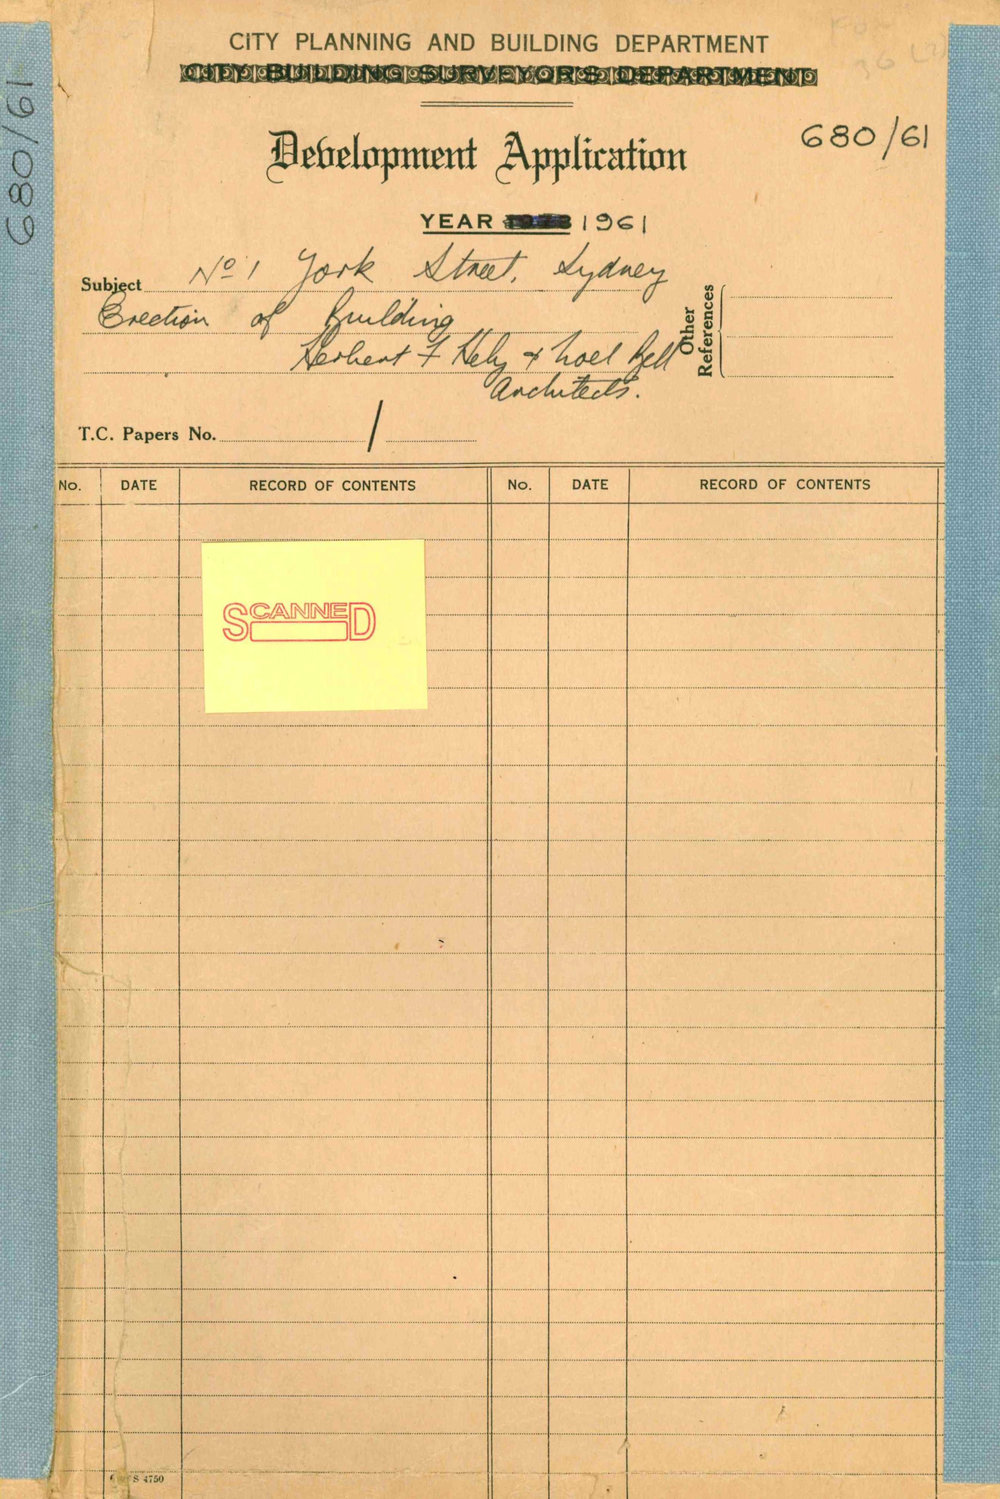 CITY PLANNING AND BUILDING DEPARTMENT
CITY BUILDING SURVEYOR'S DEPARTMENT
Development Application
680/61
680/61
YEAR 1961
Subject No 1 York Street, Sydney
Erection of Building
Herbert F Hely & Noel Bell
Architects.
Other
References
T.C. Papers No. /
No. DATE RECORD OF CONTENTS No. DATE RECORD OF CONTENTS
SCANNED
S 4750